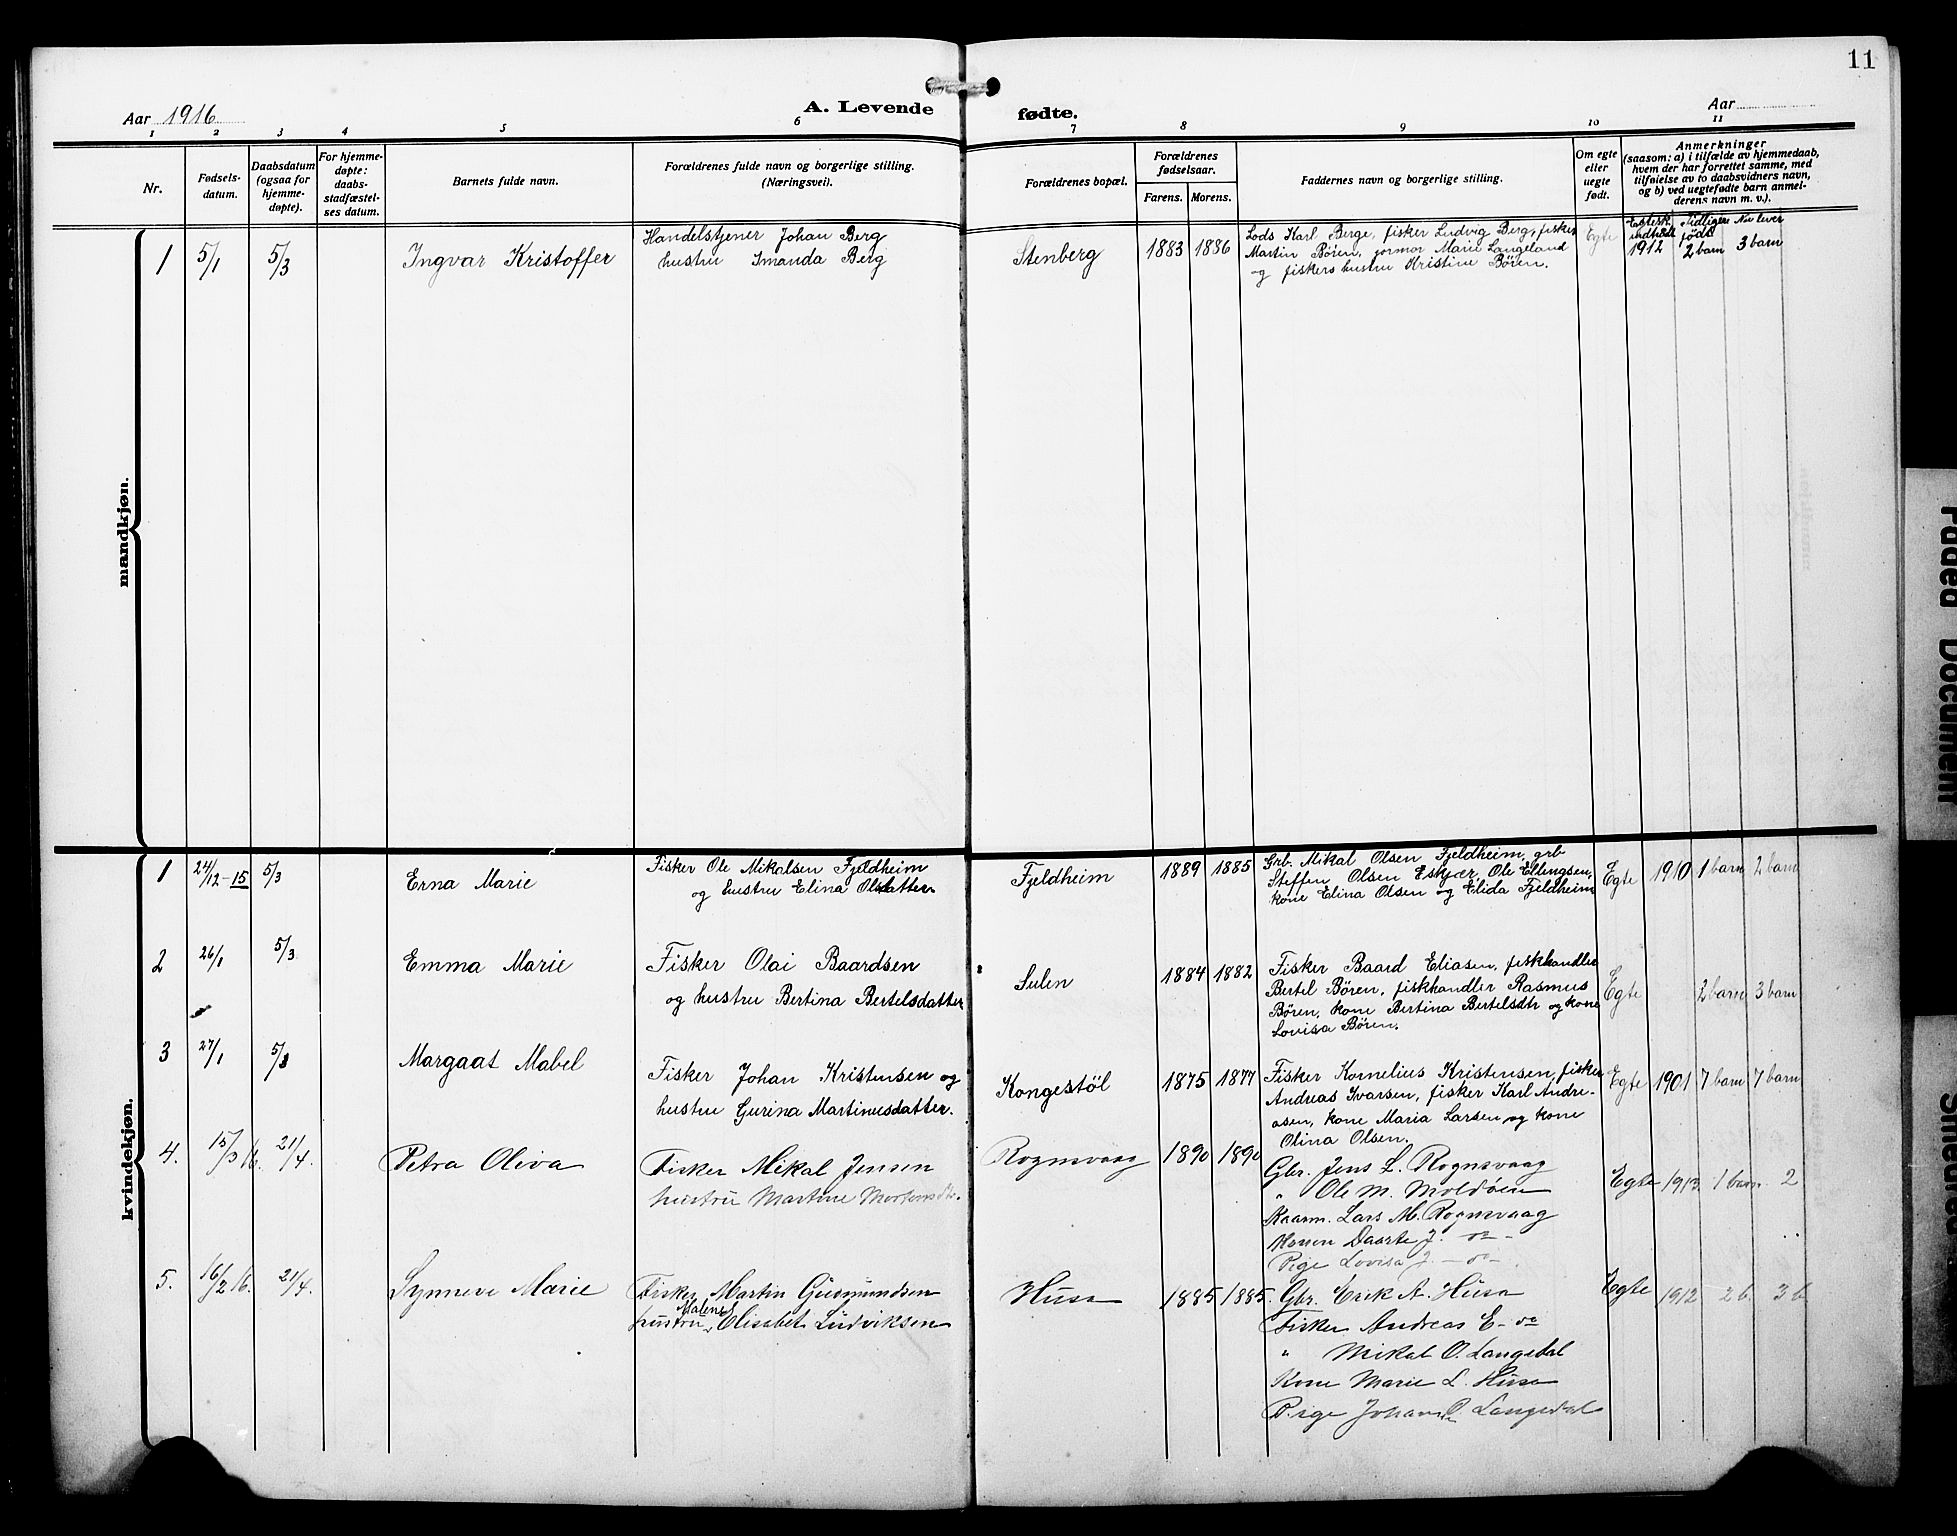 11
Aar 1916
A. Levende
fødte.
Aar
1 2 3 4 5 6 7 8 9 10 11
Nr.
Fødsels-
datum.
Daabsdatum
(ogsaa for
hjemme-
døpte).
For hjemme-
døpte:
daabs-
stadfæstel-
ses datum.
Barnets fulde navn.
Forældrenes fulde navn og borgerlige stilling.
(Næringsvei).
Forældrenes bopæl.
Forældrenes
fødselsaar.
Farens. Morens.
Faddernes navn og borgerlige stilling.
Om egte
eller
uegte
født.
Anmerkninger
(saasom: a) i tilfælde av hjemmedaab,
hvem der har forrettet samme, med
tilføielse av to daabsvidners navn,
og b) ved uegtefødte barn anmel-
derens navn m. v.).
mandkjøn.
1 5/1 5/3 Ingvar Kristoffer
Handelstjener Johan Berg
hustru Amanda Berg
Stenberg 1883 1886
Lods Karl Berge, fisker Ludvig Berg, fisker
Martin Bören, jormor Marie Langeland
og fiskers hustru Kristine Bören.
Egte
Egtesk. Tidligere Nu lever
indhold født
1912 2 barn 3 barn
kvindekjøn.
1 24/12-15 5/3 Erna Marie
Fisker Ole Mikalsen Fjeldheim
og hustru Elina Olsdatter
Fjeldheim 1889 1885
Grb. Mikal Olsen Fjeldheim, grb
Steffen Olsen Eskjær, Ole Ellingsen,
kone Elina Olsen og Elida Fjeldheim
Egte 1910 1 barn 2 barn
2 26/1 5/3 Emma Marie
Fisker Olai Baardsen
og hustru Bertina Bertelsdatter
Sulen 1884 1882
Fisker Baard Eliasen, fiskhandler
Bertel Bören, fiskhandler Rasmus
Bören, kone Bertina Bertelsdtr og kone
Lovisa Bören.
Egte 2 barn 3 barn
3 27/1 5/3 Margaat Mabel
Fisker Johan Kristensen og
hustru Gurina Martinusdatter.
Kongestöl 1875 1877
Fisker Kornelius Kristensen, fisker
Andreas Ivarsen, fisker Karl Andre-
asen, kone Maria Larsen og kone
Olina Olsen.
Egte 1901 7 barn 7 barn
4. 15/3 16. 21/4. Petra Oliva
Fisker Mikal Jensen
hustru Martine Mortensdtr.
Rognsvaag 1890 1890
Gbr. Jens L. Rognsvaag
" Ole M. Moldöen
Kaarm. Lars M. Rognsvaag
Konen Daarte J. - do -
Pige Lovisa J. - do - .
Egte 1913 1 barn. 2
5. 16/2 16. 21/4. Synneve Marie
Fisker Martin Gudmundsen
Malene
hustru Elisabet Ludviksen
Husa 1885 1885.
Gbr. Erik A. Husa
Fisker Andreas E - do
" Mikal O. Langedal
Kone Marie L. Husa
Pige Johanne O. Langedal
Egte 1912 2 b. 3 b
Faded Document